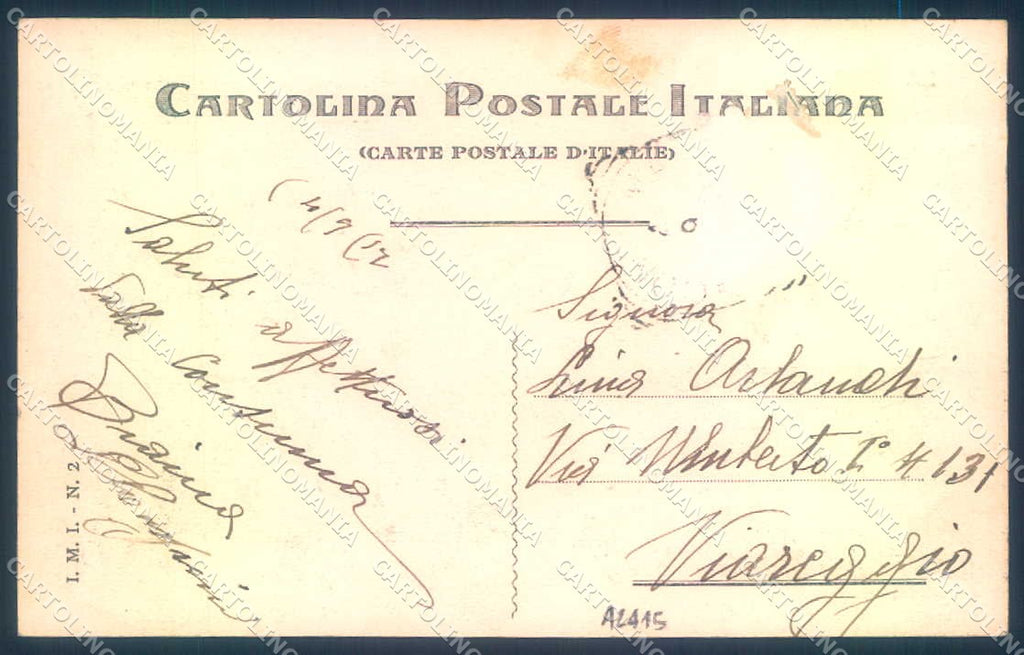 CARTOLINA POSTALE ITALIANA
(CARTE POSTALE D'ITALIE)
Saluti affettuosi
dalla
Signora
Lina Orlandi
Via Umberto I° # 131
Viareggio
I. M. I. - N. 2
AL415
CARTOLINOMANIA